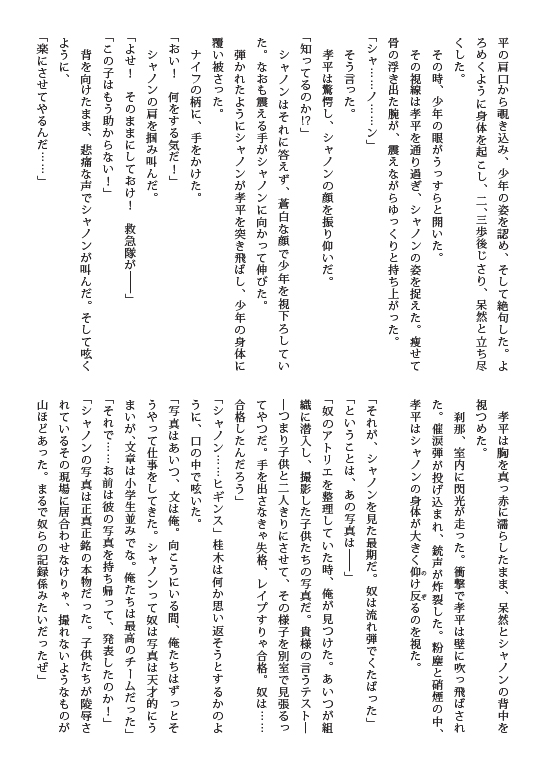 平の肩口から覗き込み、少年の姿を認め、そして絶句した。よ
ろめくように身体を起こし、二、三歩後じさり、呆然と立ち尽
くした。
その時、少年の眼がうっすらと開いた。
その視線は孝平を通り過ぎ、シャノンの姿を捉えた。痩せて
骨の浮き出た腕が、震えながらゆっくりと持ち上がった。
「シャ……ノ……ン」
そう言った。
孝平は驚愕し、シャノンの顔を振り仰いだ。
「知ってるのか!?」
シャノンはそれに答えず、蒼白な顔で少年を視下ろしてい
た。なおも震える手がシャノンに向かって伸びた。
弾かれたようにシャノンが孝平を突き飛ばし、少年の身体に
覆い被さった。
ナイフの柄に、手をかけた。
「おい！　何をする気だ！」
シャノンの肩を掴み叫んだ。
「よせ！　そのままにしておけ！　救急隊が――」
「この子はもう助からない！」
背を向けたまま、悲痛な声でシャノンが叫んだ。そして呟く
ように、
「楽にさせてやるんだ……」
孝平は胸を真っ赤に濡らしたまま、呆然とシャノンの背中を
視つめた。
刹那、室内に閃光が走った。衝撃で孝平は壁に吹っ飛ばされ
た。催涙弾が投げ込まれ、銃声が炸裂した。粉塵と硝煙の中、
孝平はシャノンの身体が大きく仰け反るのを視た。
「それが、シャノンを見た最期だ。奴は流れ弾でくたばった」
「ということは、あの写真は――」
「奴のアトリエを整理していた時、俺が見つけた。あいつが組
織に潜入し、撮影した子供たちの写真だ。貴様の言うテスト―
―つまり子供と二人きりにさせて、その様子を別室で見張るっ
てやつだ。手を出さなきゃ失格、レイプすりゃ合格。奴は……
合格したんだろう」
「シャノン……ヒギンス」桂木は何か思い返そうとするかのよ
うに、口の中で呟いた。
「写真はあいつ、文は俺。向こうにいる間、俺たちはずっとそ
うやって仕事をしてきた。シャノンって奴は写真は天才的にう
まいが、文章は小学生並みでな。俺たちは最高のチームだった」
「それで……お前は彼の写真を持ち帰って、発表したのか！」
「シャノンの写真は正真正銘の本物だった。子供たちが陵辱さ
れているその現場に居合わせなけりゃ、撮れないようなものが
山ほどあった。まるで奴らの記録係みたいだったぜ」